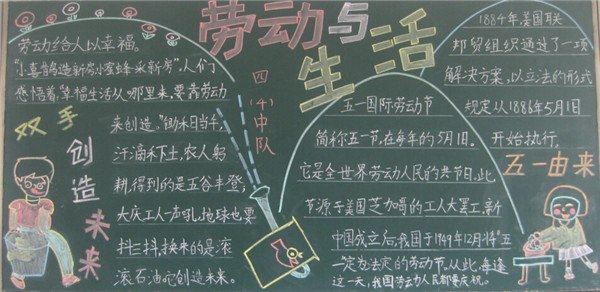 劳动与
生活
四(4)中队
劳动给人以幸福。
"小喜鹊造新房小蜜蜂采新房",人们
感悟着,幸福生活从哪里来,要靠劳动
来创造。"锄禾日当午,
汗滴禾下土,农人躬
耕,得到的是五谷丰登;
大庆工人一声吼,地球也要
抖三抖,换来的是滚
滚石油
创造未来。
双手
创造未来
五一国际劳动节
简称五一节,在每年的5月1日。
它是全世界劳动人民的共节日,此
节源于美国芝加哥的工人大罢工,新
中国成立后,我国于1949年12月将"五
一"定为法定的劳动节。从此,每逢
这一天,我国劳动人民都要庆祝。
1884年美国联
邦贸组织通过了一项
解决方案,以立法的形式
规定从1886年5月1日
开始执行,
五一由来